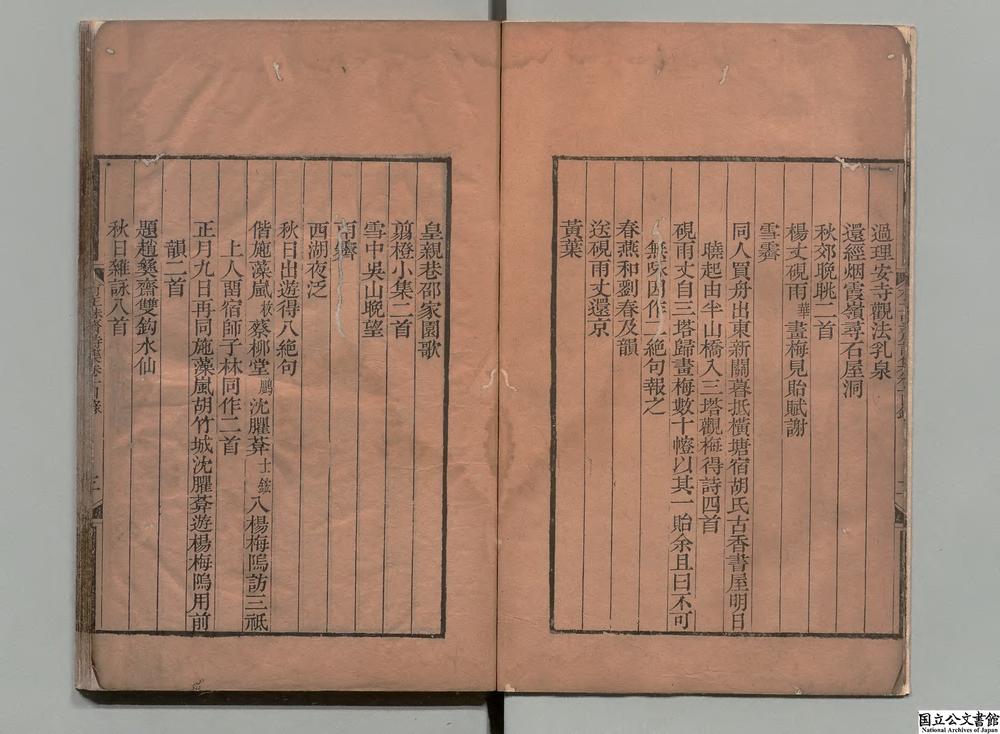 過理安寺觀法乳泉
還經烟霞嶺尋石屋洞
秋郊晚眺二首
楊丈硯雨華畫梅見貽賦謝
雪霽
同人買舟出東新關暮抵橫塘宿胡氏古香書屋明日
曉起由半山橋入三塔觀梅得詩四首
硯雨丈自三塔歸畫梅數十幀以其一貽余且曰不可
無咏因作二絶句報之
春燕和劉春及韻
送硯雨丈還京
黃葉
皇親巷邵家園歌
翦橙小集二首
雪中吳山晚望
雨霽
西湖夜泛
秋日出遊得八絶句
偕施藻嵐蔡柳堂鵬沈臞莾士鋐入楊梅隖訪三祇
上人畱宿師子林同作二首
正月九日再同施藻嵐胡竹城沈臞莾遊楊梅隖用前
韻二首
題趙彝齋雙鈎水仙
秋日雜詠八首
三
国立公文書館
National Archives of Japan